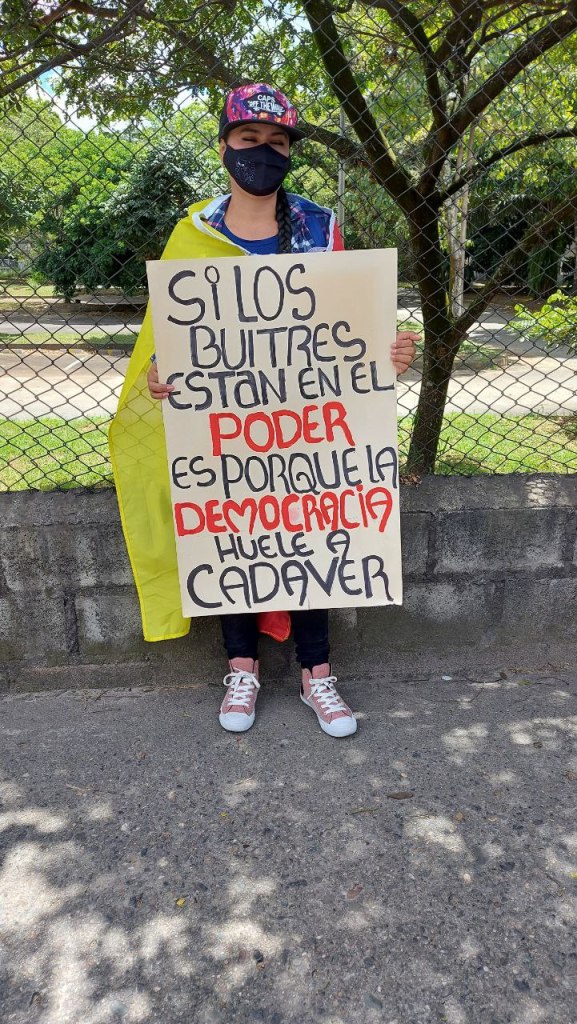 SI LOS
BUITRES
ESTAN EN EL
PODER
ES PORQUE LA
DEMOCRACIA
HUELE A
CADAVER